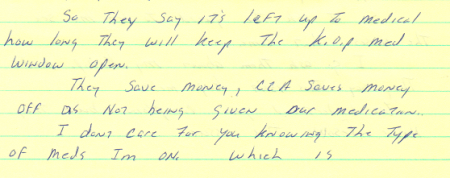 So They say iT's left up To medical
how long They will keep The K.O.P med
window open.
They save money, CCA saves money
off us Not being given our medication.
I dont care for you knowing The Type
of meds Im on. which is